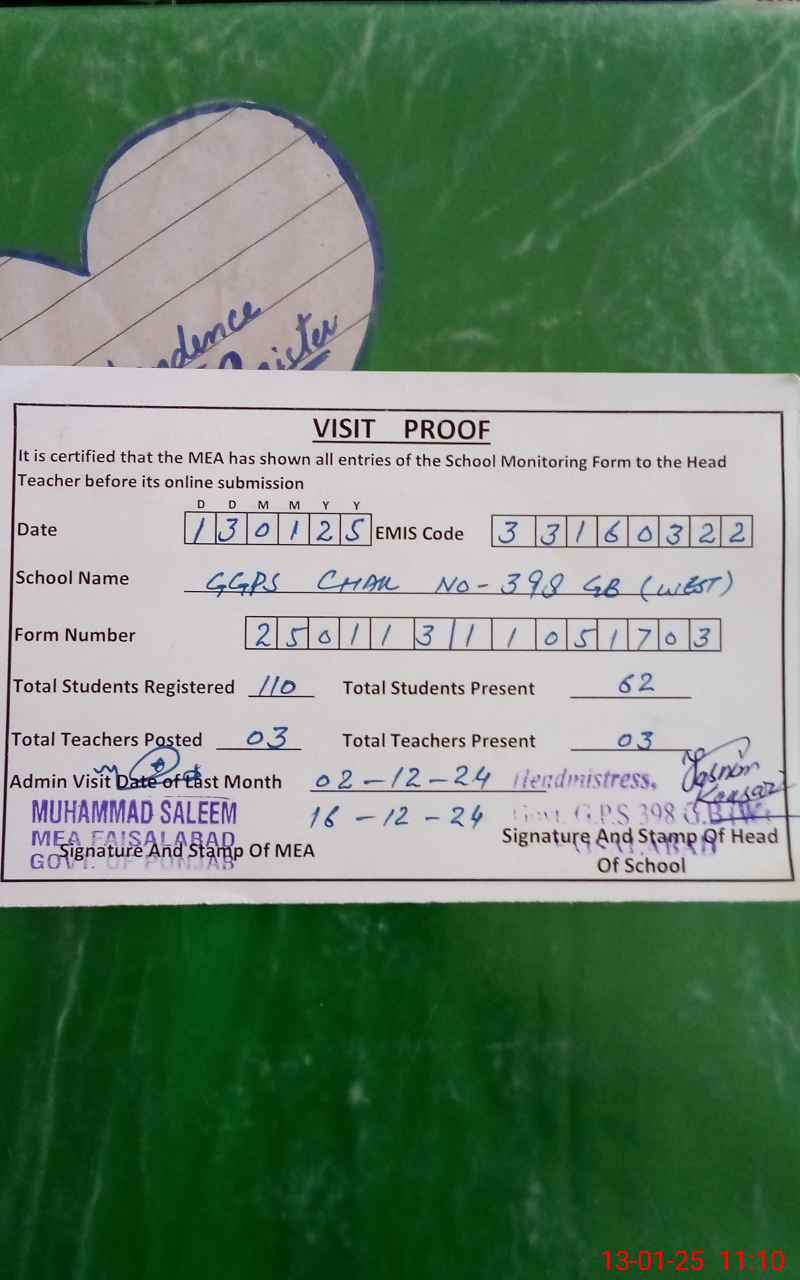 ndence
Register
VISIT PROOF
It is certified that the MEA has shown all entries of the School Monitoring Form to the Head
Teacher before its online submission
D D M M Y Y
Date 130125 EMIS Code 33160322
School Name GGPS CHAK NO-398 GB (WEST)
Form Number 25011311051703
Total Students Registered 110 Total Students Present 62
Total Teachers Posted 03 Total Teachers Present 03
Admin Visit Date of Last Month 02-12-24 Headmistress, Yasmin
Kausar
MUHAMMAD SALEEM 16-12-24 Govt. G.P.S 398 G.B (W)
MEA FAISALABAD Signature And Stamp Of Head
Signature And Stamp Of MEA
GOVT. OF PUNJAB Of School
13-01-25 11:10